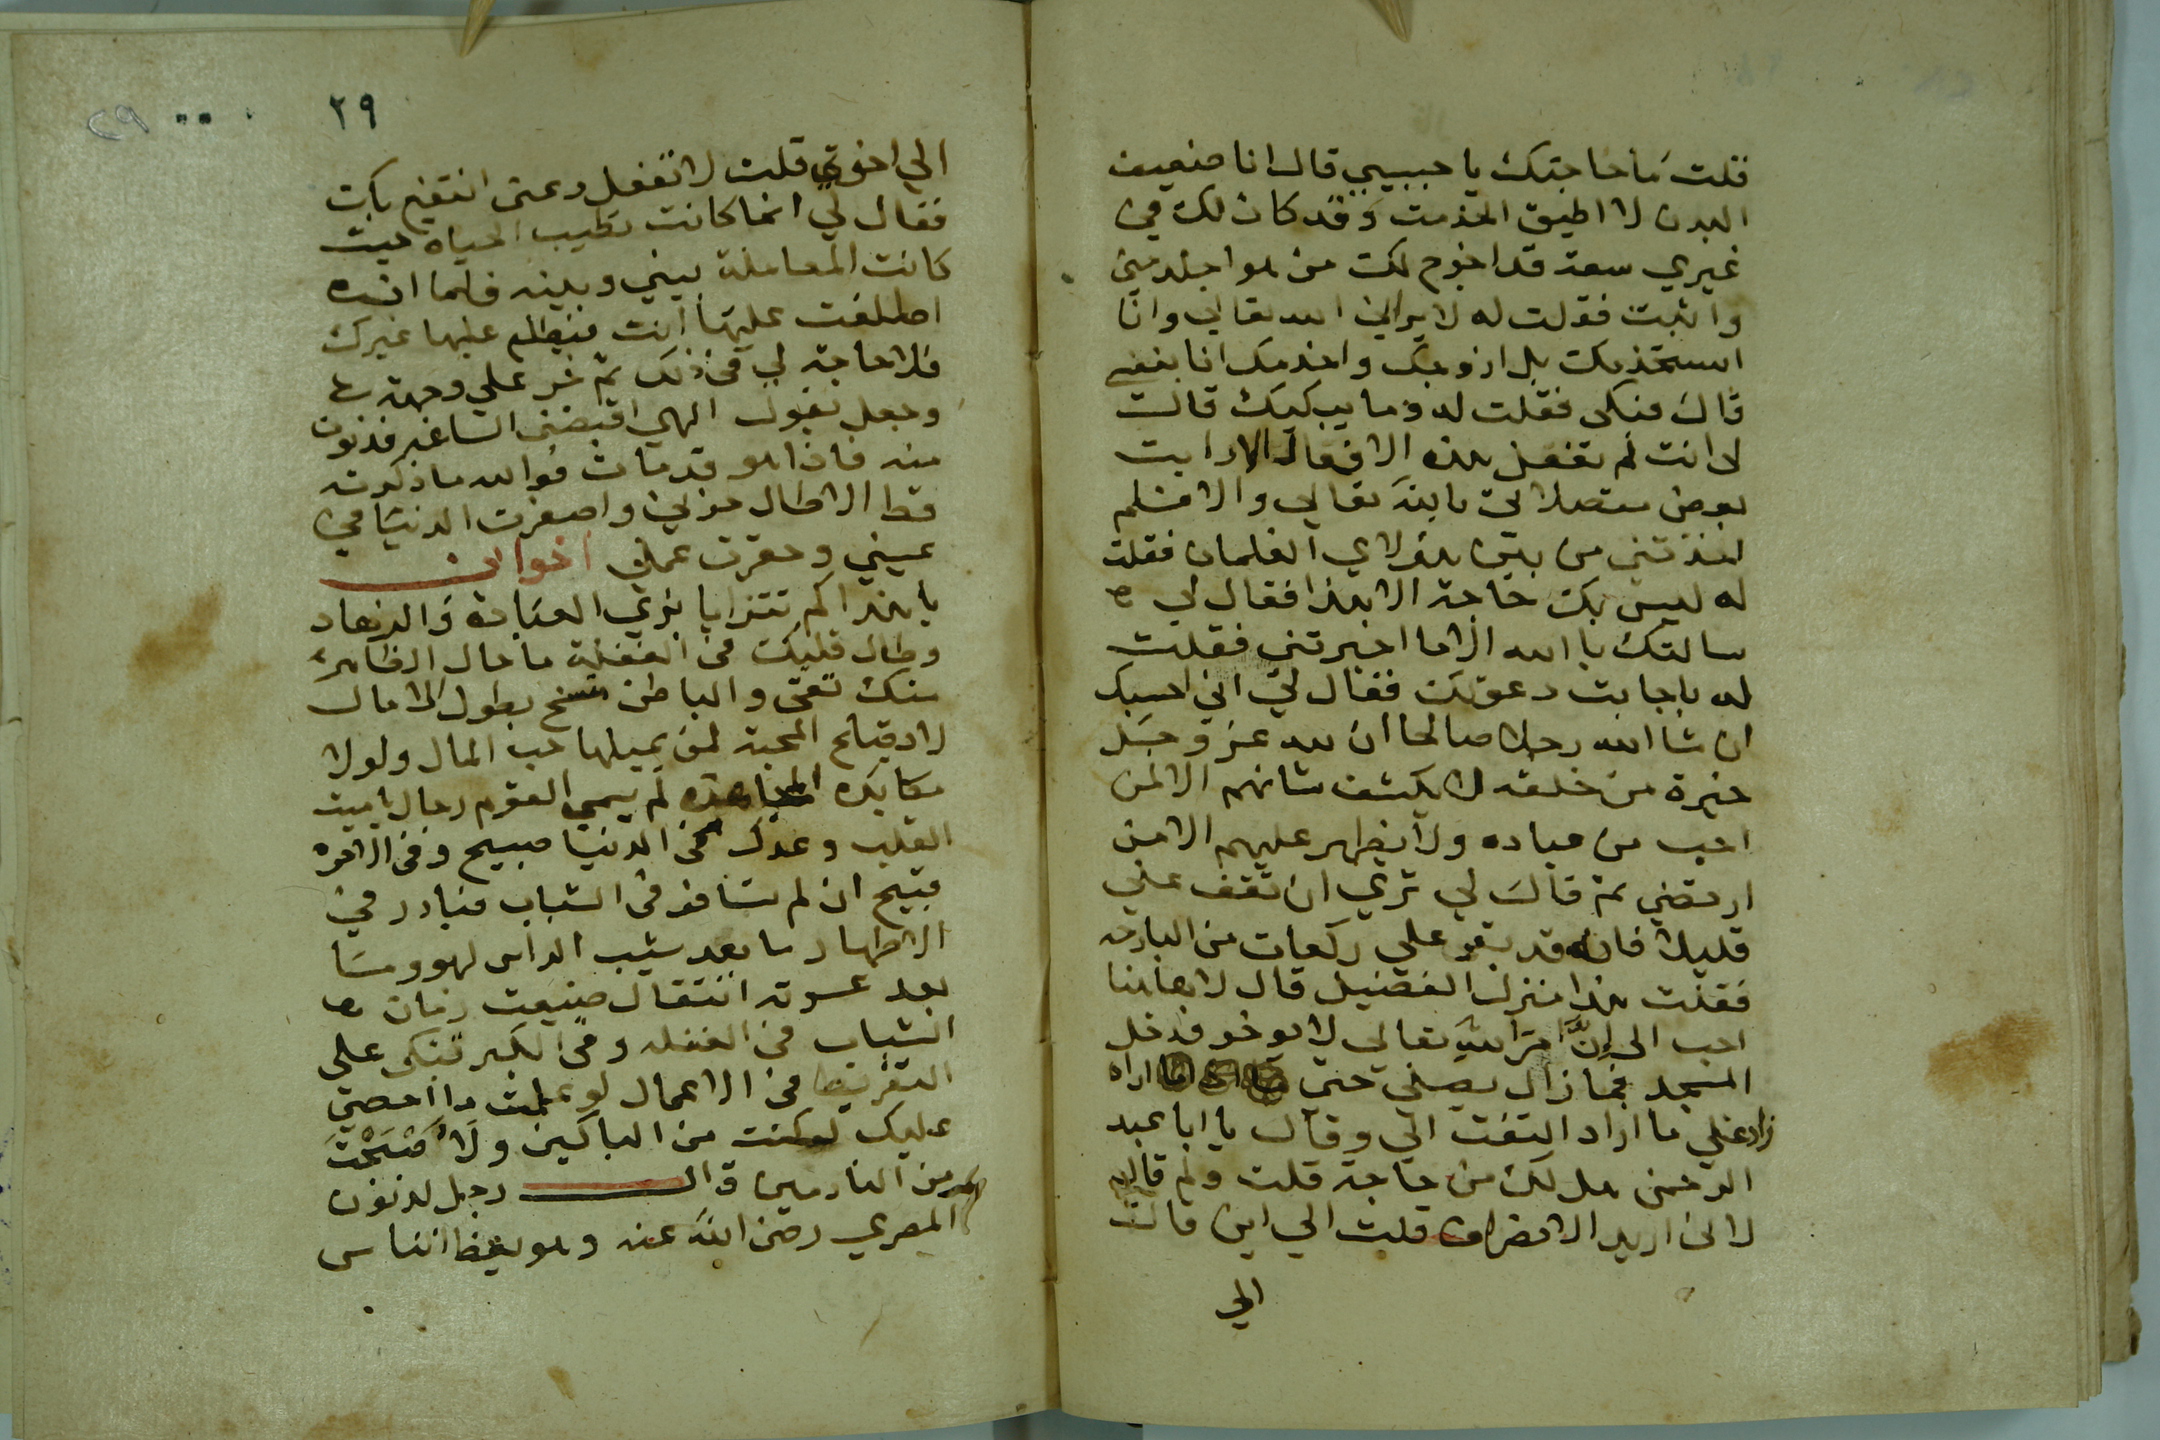 قلت ما حاجتك يا حبيبي قال انا ضعيف
البدن لا اطيق الخدمت وقد كان لك في
غيري سعة قد اخرج لك من هو اجلد مني
واثبت فقلت له لا يراني الله تعالي وانا
استخدمك بل ازوجك واخدمك انا بنفسي
قال فبكى فقلت له وما يبكيك قالت
لا انت لم تفعل هذه الا فعال الا رايت
بعض متصلاتي بالله تعالي والا فلم
اخذتني من بين هولاي الغلمان فقلت
له ليس بك حاجة الا بهذا فقال لي
سالتك باالله الا ما اخبرتني فقلت
له باجابت دعوتك فقال لي اني احسبك
ان شا الله رجلا صالحا ان لله عز وجل
خيرة من خلقه لا يكشف شانهم الا لمن
احب من عباده ولا يظهر عليهم الا من
ارتضي ثم قال لي تري ان تقف علي
قليلا فانه قد بقي علي ركعات من البارحه
فقلت هذا منزل الفضيل قال لا هاهنا
احب الي ان امر الله تعالي لا يوخر فدخل
المسجد فما زال يصلي حتى اراه
زاد علي ما اراد التفت الي وقال يا ابا عبد
الرحمن هل لك من حاجة قلت ولم قال
لا اني اريد الانصراف قلت الي اين قالت
الي
٢٩
29
الي اخرتي قلت لا تفعل دعني انتفع بك
فقال لي انما كانت تطيب الحياه حيث
كانت المعاملة بيني وبينه فلما ان
اطلعت عليها انت فيطلع عليها غيرك
فلا حاجة لي في ذلك ثم خر علي وجهه
وجعل يقول الهي اقبضني الساعه فدنوت
منه فاذا هو قد مات فوالله ما ذكرته
قط الا طال حزني واصغرت الدنيا في
عيني وحقرت عملي اخواني
يا هذا كم تتزايا بزي العبادة والزهاد
وطال قلبك في الغفلة ما حال الظاهر
منك نقي والباطن متسخ بطول الامال
لا دقايع المحبة لمن يميلها حب المال ولولا
مكابدة المجاهده لم يسمي القوم رجال ياميت
القلب وعدك في الدنيا صبيح وفي الاخره
قبيح ان لم تسافر في الشباب فبادر في
الاظهار ما بعد شيب الراس لهو ومسا
بعد انتقال ضيعت زمان
الشباب في الغفله وفي الكبر تبكي علي
التفريط في الاعمال لو علمت ما احصي
عليك لكنت من الباكين ولاصبحت
من النادمين قال رجل لذنون
المصري رضي الله عنه وهو يعظ الناس